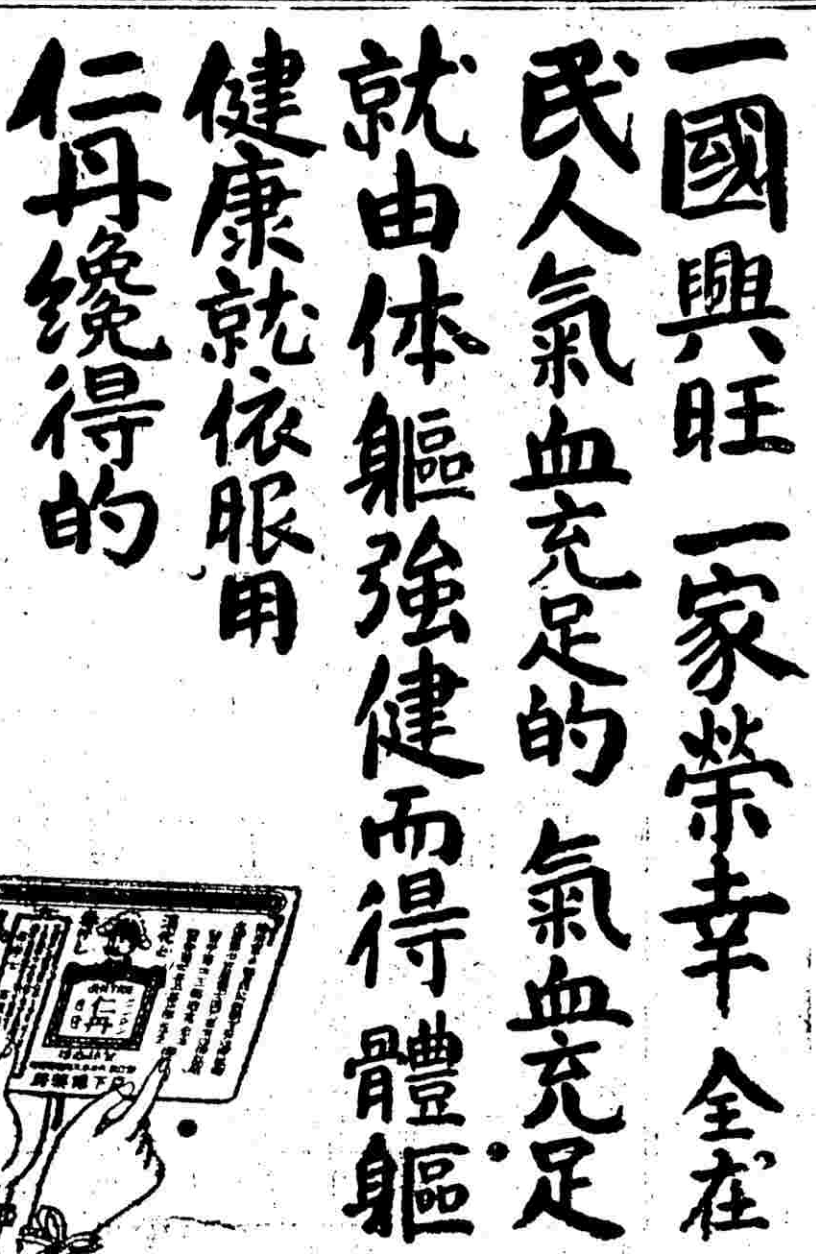 一國興旺 一家榮幸 全在
民人氣血充足的 氣血充足
就由体軀強健而得 體軀
健康就依服用
仁丹纔得的
仁丹